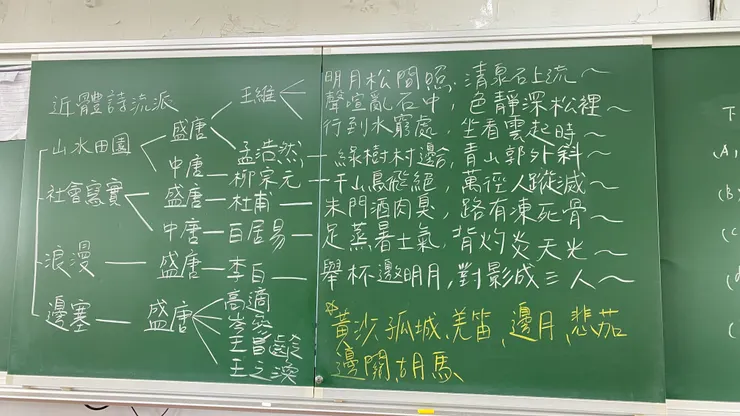 近體詩流派
山水田園
盛唐
王維
明月松間照,清泉石上流~
聲喧亂石中,色靜深松裡~
行到水窮處,坐看雲起時~
孟浩然
綠樹村邊合,青山郭外斜~
中唐
柳宗元
千山鳥飛絕,萬徑人蹤滅~
社會寫實
盛唐
杜甫
朱門酒肉臭,路有凍死骨~
中唐
白居易
足蒸暑土氣,背灼炎天光~
浪漫
盛唐
李白
舉杯邀明月,對影成三人~
邊塞
盛唐
高適
岑參
王昌齡
王之渙
*黃沙、孤城、羌笛、邊月、悲笳
邊關、胡馬
下
(A
(B
(C
(
(